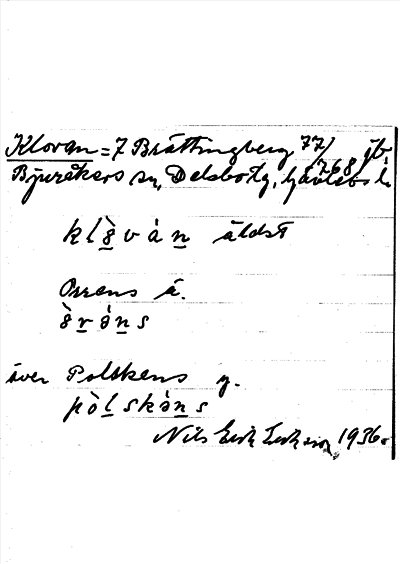 Klovan = 7 Brättingberg 77/768 jb.
Bjuråkers sn, Delsbo tg, Gävlebo l.
klòvàn äldst
Orrens å.
òràns
över Polskens y.
pòlskàns
Nils Erik Eriksson, 1936.